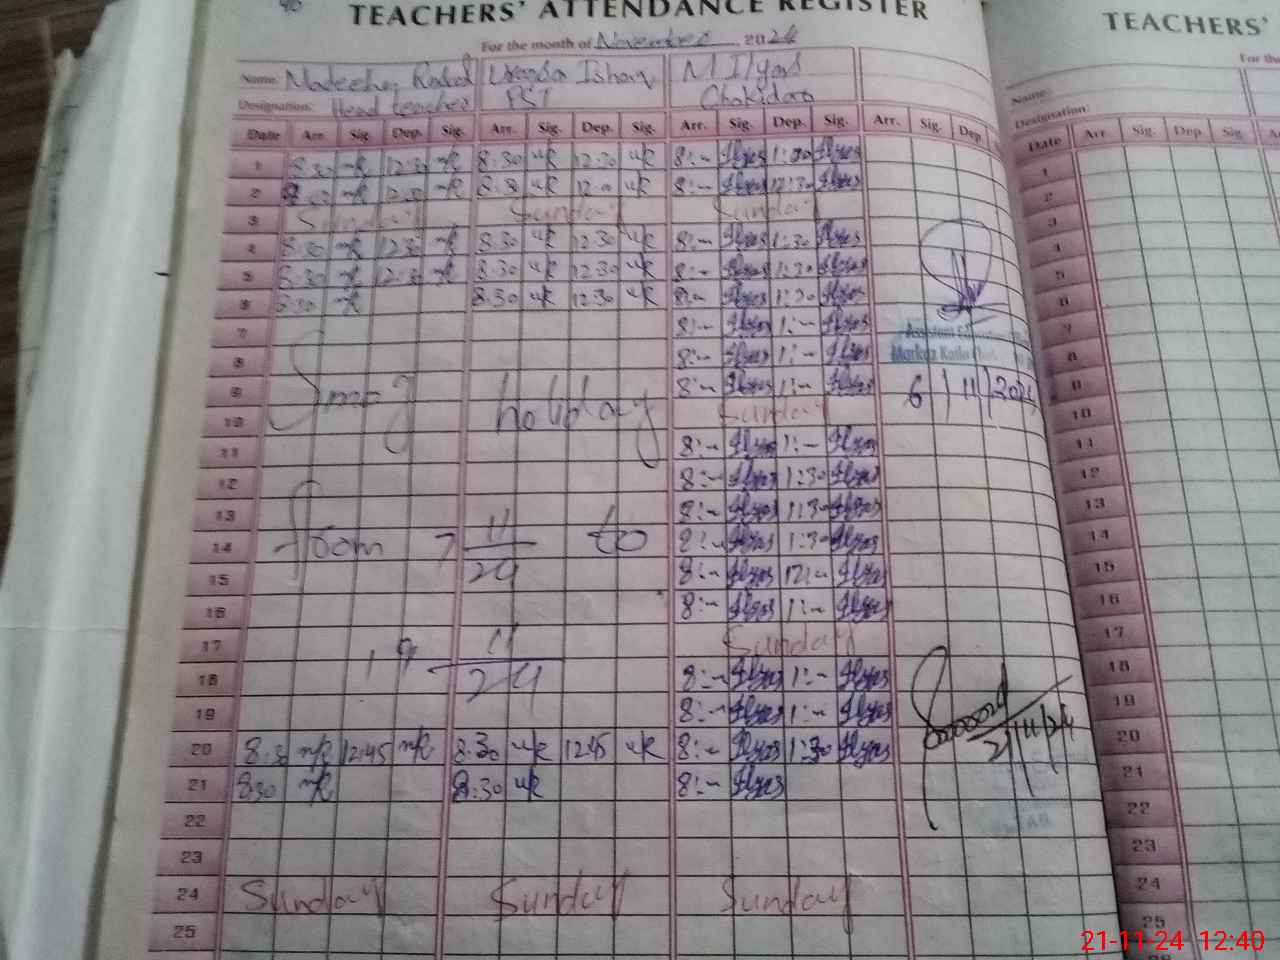 TEACHERS' ATTENDANCE REGISTER
For the month of November, 2024
Name: Madeeha M Ilyas
Designation: Head teacher PST Chokidar
Date Arr. Sig. Dep. Sig. Arr. Sig. Dep. Sig. Arr. Sig. Dep. Sig. Arr. Sig. Dep
1 8:30 mR 12:30 mR 8:30 uR 12:30 uR 8:- Ilyas Ilyas
2 mR 12:30 mR uR uR 8:- Ilyas 12:30 Ilyas
3 Sunday Sunday Sunday
4 8:30 mR 12:30 mR 8:30 uR 12:30 uR 8:- Ilyas 1:30 Ilyas
5 8:30 mR 12:30 mR 8:30 uR 12:30 uR 8:- Ilyas 1:30 Ilyas
6 8:30 mR 8:30 uR 12:30 uR 8:- Ilyas 1:30 Ilyas
7 8:- Ilyas 1:- Ilyas
8 8:- Ilyas 1:- Ilyas
9 Smog holiday 8:- Ilyas 1:- Ilyas 6 11 2024
10 Sunday
11 8:- Ilyas 1:- Ilyas
12 8:- Ilyas 1:30 Ilyas
13 8:- Ilyas 1:30 Ilyas
14 from 7 11/24 to 8:- Ilyas 1:30 Ilyas
15 8:- Ilyas 12:- Ilyas
16 8:- Ilyas 1:- Ilyas
17 Sunday
18 19 11/24 8:- Ilyas 1:- Ilyas
19 8:- Ilyas 1:- Ilyas
20 8:30 mR 12:45 mR 8:30 uR 12:45 uR 8:- Ilyas 1:30 Ilyas 21/11/24
21 8:30 mR 8:30 uR 8:- Ilyas
22
23
24 Sunday Sunday Sunday
25
TEACHERS'
For the
Name:
Designation:
Date Arr. Sig. Dep. Sig.
1
2
3
4
5
6
7
8
9
10
11
12
13
14
15
16
17
18
19
20
21
22
23
24
25
21-11-24 12:40